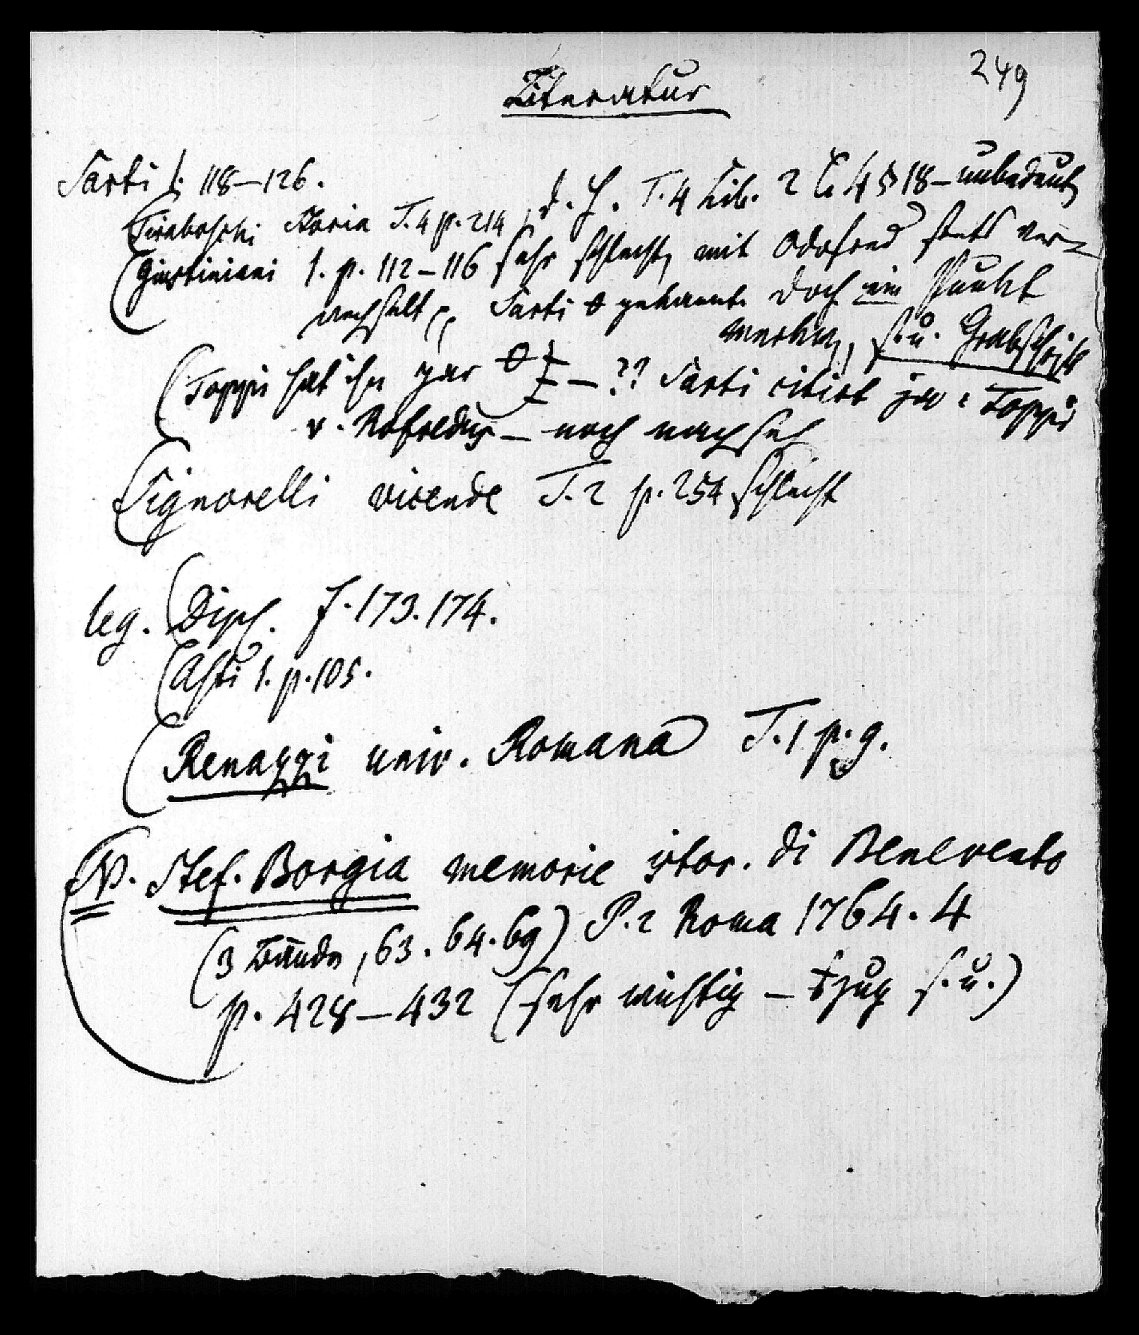 249
Literatur
Sarti 1. 118–126.
(Tiraboschi Storia T. 4 p. 214, d. h. T. 4 Lib. 2 C. 4 § 18 – unbedeut
(Giustiniani 1. p. 112–116 sehr schlecht, mit Odofred stets ver-
wechselt, Sarti gekannt. Doch ein Punkt
merkw., s. u. Grabschrift
(Toppi hat ihn gar – ?? Sarti citirt ja : Toppi
v. Rofredus – noch nachseh
(Signorelli vicende T. 2 p. 254 schlecht
leg. (Dipl. f. 173. 174.
(Asti 1. p. 105.
(Renazzi univ. Romana T. 1 p. 9.
N. Stef. Borgia memorie istor. di Benevento
(3 Bände, 63. 64. 69) P. 2 Roma 1764. 4
p. 428–432 (sehr wichtig – s. u.)